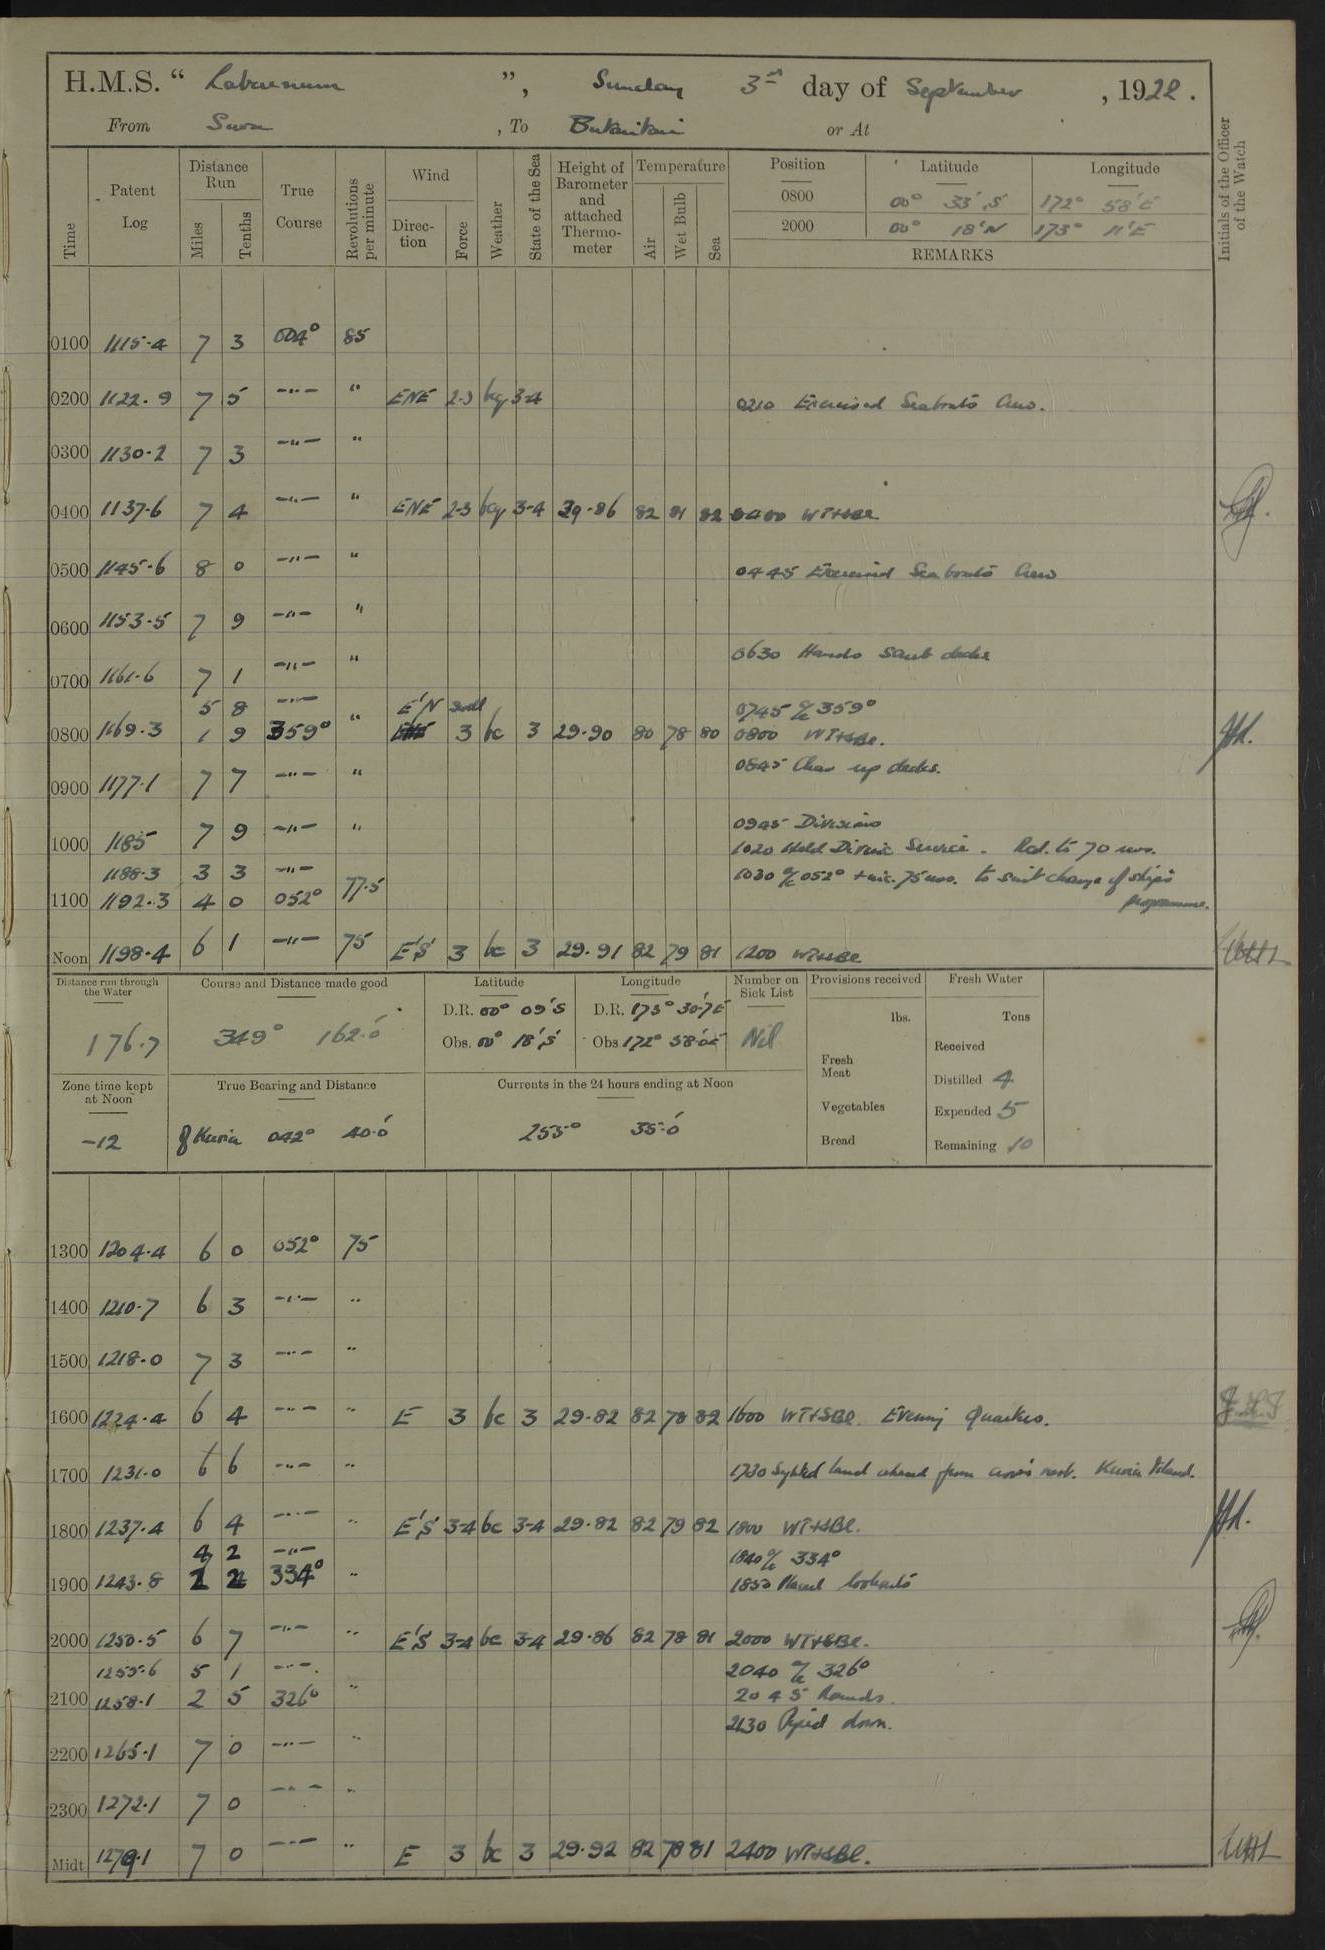 H.M.S. “ Laburnum ”, Sunday 3rd day of September, 1922.
From Suva, To Butaritari or At
Time Patent Log Distance Run Miles Tenths True Course Revolutions per minute Wind Direction Force Weather State of the Sea Height of Barometer and attached Thermometer Temperature Air Wet Bulb Sea Position Latitude Longitude Initials of the Officer of the Watch
0800 00° 33' S 172° 58' E
2000 00° 18' N 173° 11' E
REMARKS
0100 1115.4 7 3 004° 85
0200 1122.9 7 5 —"— " ENE 2-3 bcq 3-4 0210 Exercised Seaboats Crew.
0300 1130.2 7 3 —"— "
0400 1137.6 7 4 —"— " ENE 2-3 bcq 3-4 29.86 82 81 82 0400 WT+SBE
0500 1145.6 8 0 —"— " 0445 Exercised Seaboats Crew
0600 1153.5 7 9 —"— "
0630 Hands scrub decks
0700 1161.6 7 1 —"— "
5 8 —"— E'N 0745 a/c 359°
0800 1169.3 1 9 359° " 3 bc 3 29.90 80 78 80 0800 WT+SBE.
0845 Clear up decks.
0900 1177.1 7 7 —"— "
0945 Divisions
1000 1185 7 9 —"— " 1020 Held Divine Service. Red. to 70 revs.
1188.3 3 3 —"— 1030 a/c 052° + inc. 75 revs. to suit change of ships
1100 1192.3 4 0 052° 77.5 programme.
Noon 1198.4 6 1 —"— 75 E'S 3 bc 3 29.91 82 79 81 1200 WT+SBE
Distance run through the Water Course and Distance made good Latitude Longitude Number on Sick List Provisions received Fresh Water
176.7 349° 162.0' D.R. 00° 09' S D.R. 173° 30.7' E Nil lbs. Tons
Obs. 00° 18' S Obs 172° 58.0' E Received
Fresh Meat
Zone time kept at Noon True Bearing and Distance Currents in the 24 hours ending at Noon Distilled 4
Vegetables Expended 5
-12 of Kuria 042° 40.0' 255° 35.0' Bread Remaining 10
1300 1204.4 6 0 052° 75
1400 1210.7 6 3 —"— "
1500 1218.0 7 3 —"— "
1600 1224.4 6 4 —"— " E 3 bc 3 29.82 82 78 82 1600 WT+SBE. Evening Quarters.
1700 1231.0 6 6 —"— " 1730 Sighted land ahead from crow's nest. Kuria Island.
1800 1237.4 6 4 —"— " E'S 3-4 bc 3-4 29.82 82 79 82 1800 WT+SBE.
4 2 —"— 1840 a/c 334°
1900 1243.8 2 2 334° " 1850 Placed lookouts
2000 1250.5 6 7 —"— " E'S 3-4 bc 3-4 29.86 82 78 81 2000 WT+SBE.
1255.6 5 1 —"— 2040 a/c 326°
2100 1258.1 2 5 326° " 2045 Rounds.
2130 Piped down.
2200 1265.1 7 0 —"— "
2300 1272.1 7 0 —"— "
Midt 1279.1 7 0 —"— " E 3 bc 3 29.92 82 78 81 2400 WT+SBE.